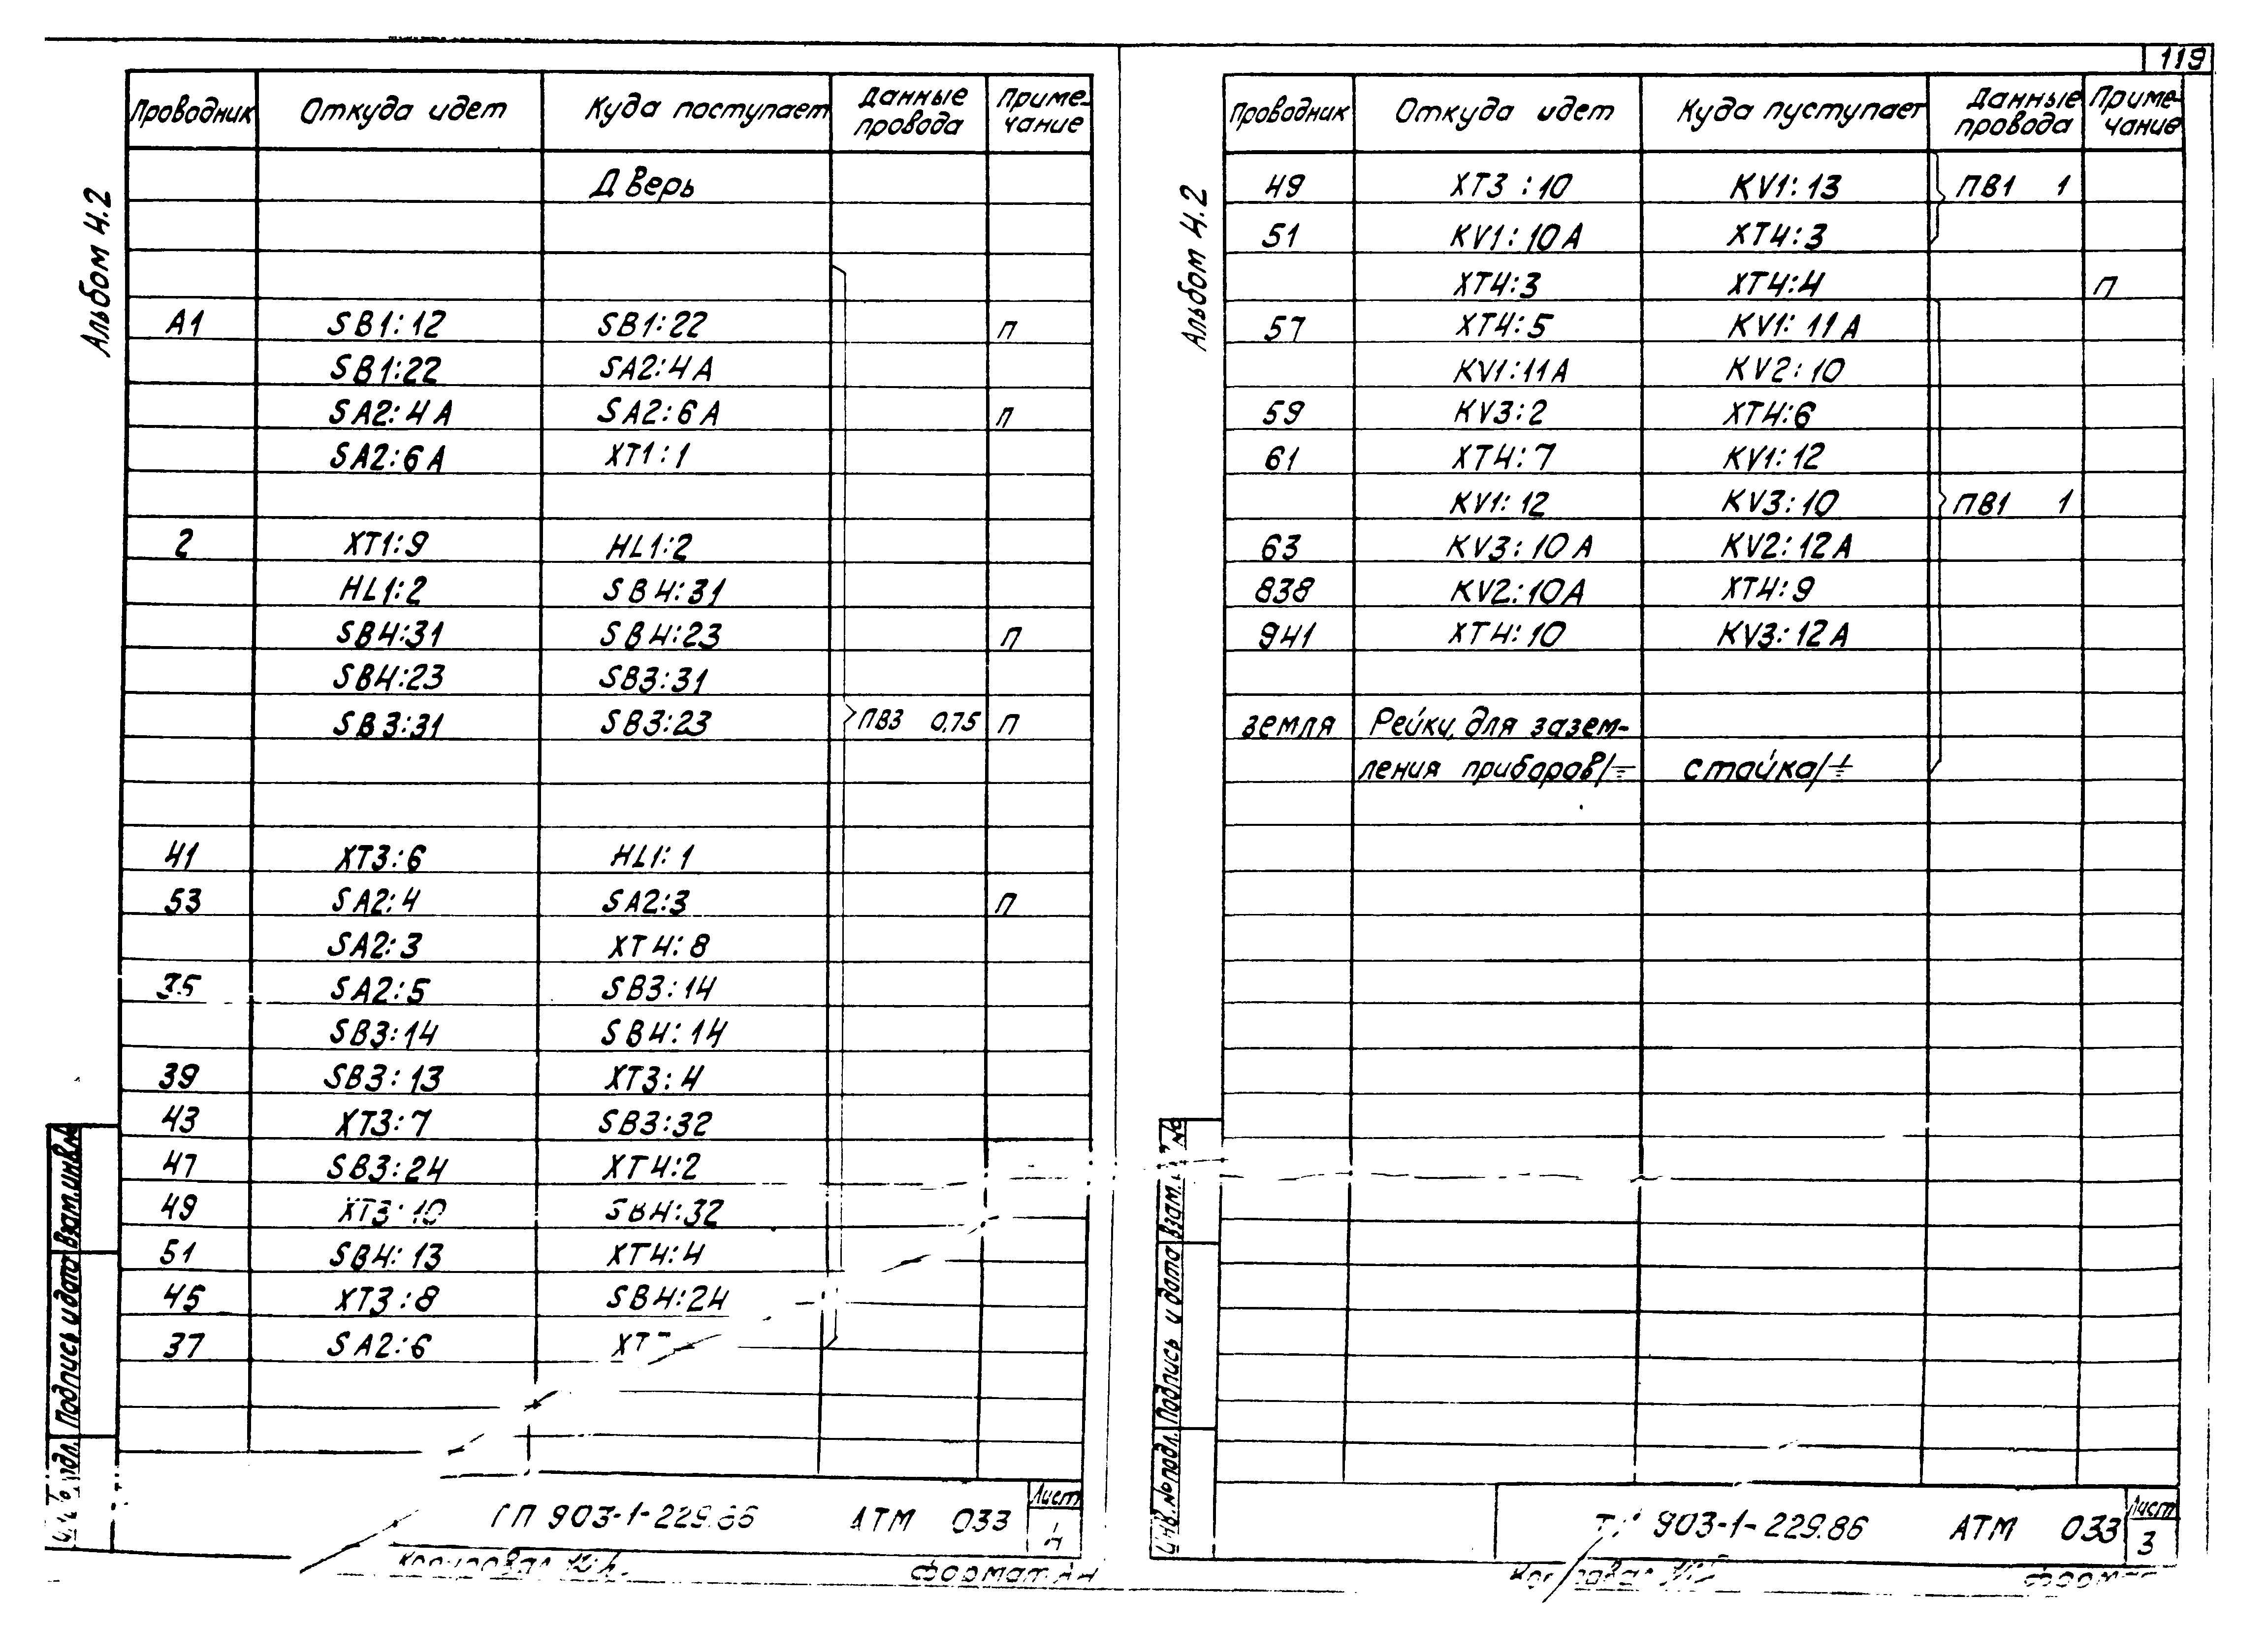 119
Альбом 4.2
Проводник Откуда идет Куда поступает Данные провода Примечание
Дверь
А1 SB1:12 SB1:22 П
SB1:22 SA2:4А
SA2:4А SA2:6А П
SA2:6А XT1:1
2 XT1:9 HL1:2
HL1:2 SB4:31
SB4:31 SB4:23 П
SB4:23 SB3:31
SB3:31 SB3:23 ПВ3 0,75 П
41 XT3:6 HL1:1
53 SA2:4 SA2:3 П
SA2:3 XT4:8
35 SA2:5 SB3:14
SB3:14 SB4:14
39 SB3:13 XT3:4
43 XT3:7 SB3:32
47 SB3:24 XT4:2
49 XT3:10 SB4:32
51 SB4:13 XT4:4
45 XT3:8 SB4:24
37 SA2:6
Взам.инв.№
Подпись и дата
903-1-229.86 АТМ 033
Лист
4
Копировал
Формат А4
Альбом 4.2
Проводник Откуда идет Куда пуступает Данные провода Примечание
49 XT3:10 KV1:13 ПВ1 1
51 KV1:10А XT4:3
XT4:3 XT4:4 П
57 XT4:5 KV1:11А
KV1:11А KV2:10
59 KV3:2 XT4:6
61 XT4:7 KV1:12
KV1:12 KV3:10 ПВ1 1
63 KV3:10А KV2:12А
838 KV2:10А XT4:9
941 XT4:10 KV3:12А
земля Рейки, для зазем-
ления приборов/⏚ стойка/⏚
Взам. №
Подпись и дата
Инв.№подл.
903-1-229.86 АТМ 033
Лист
3